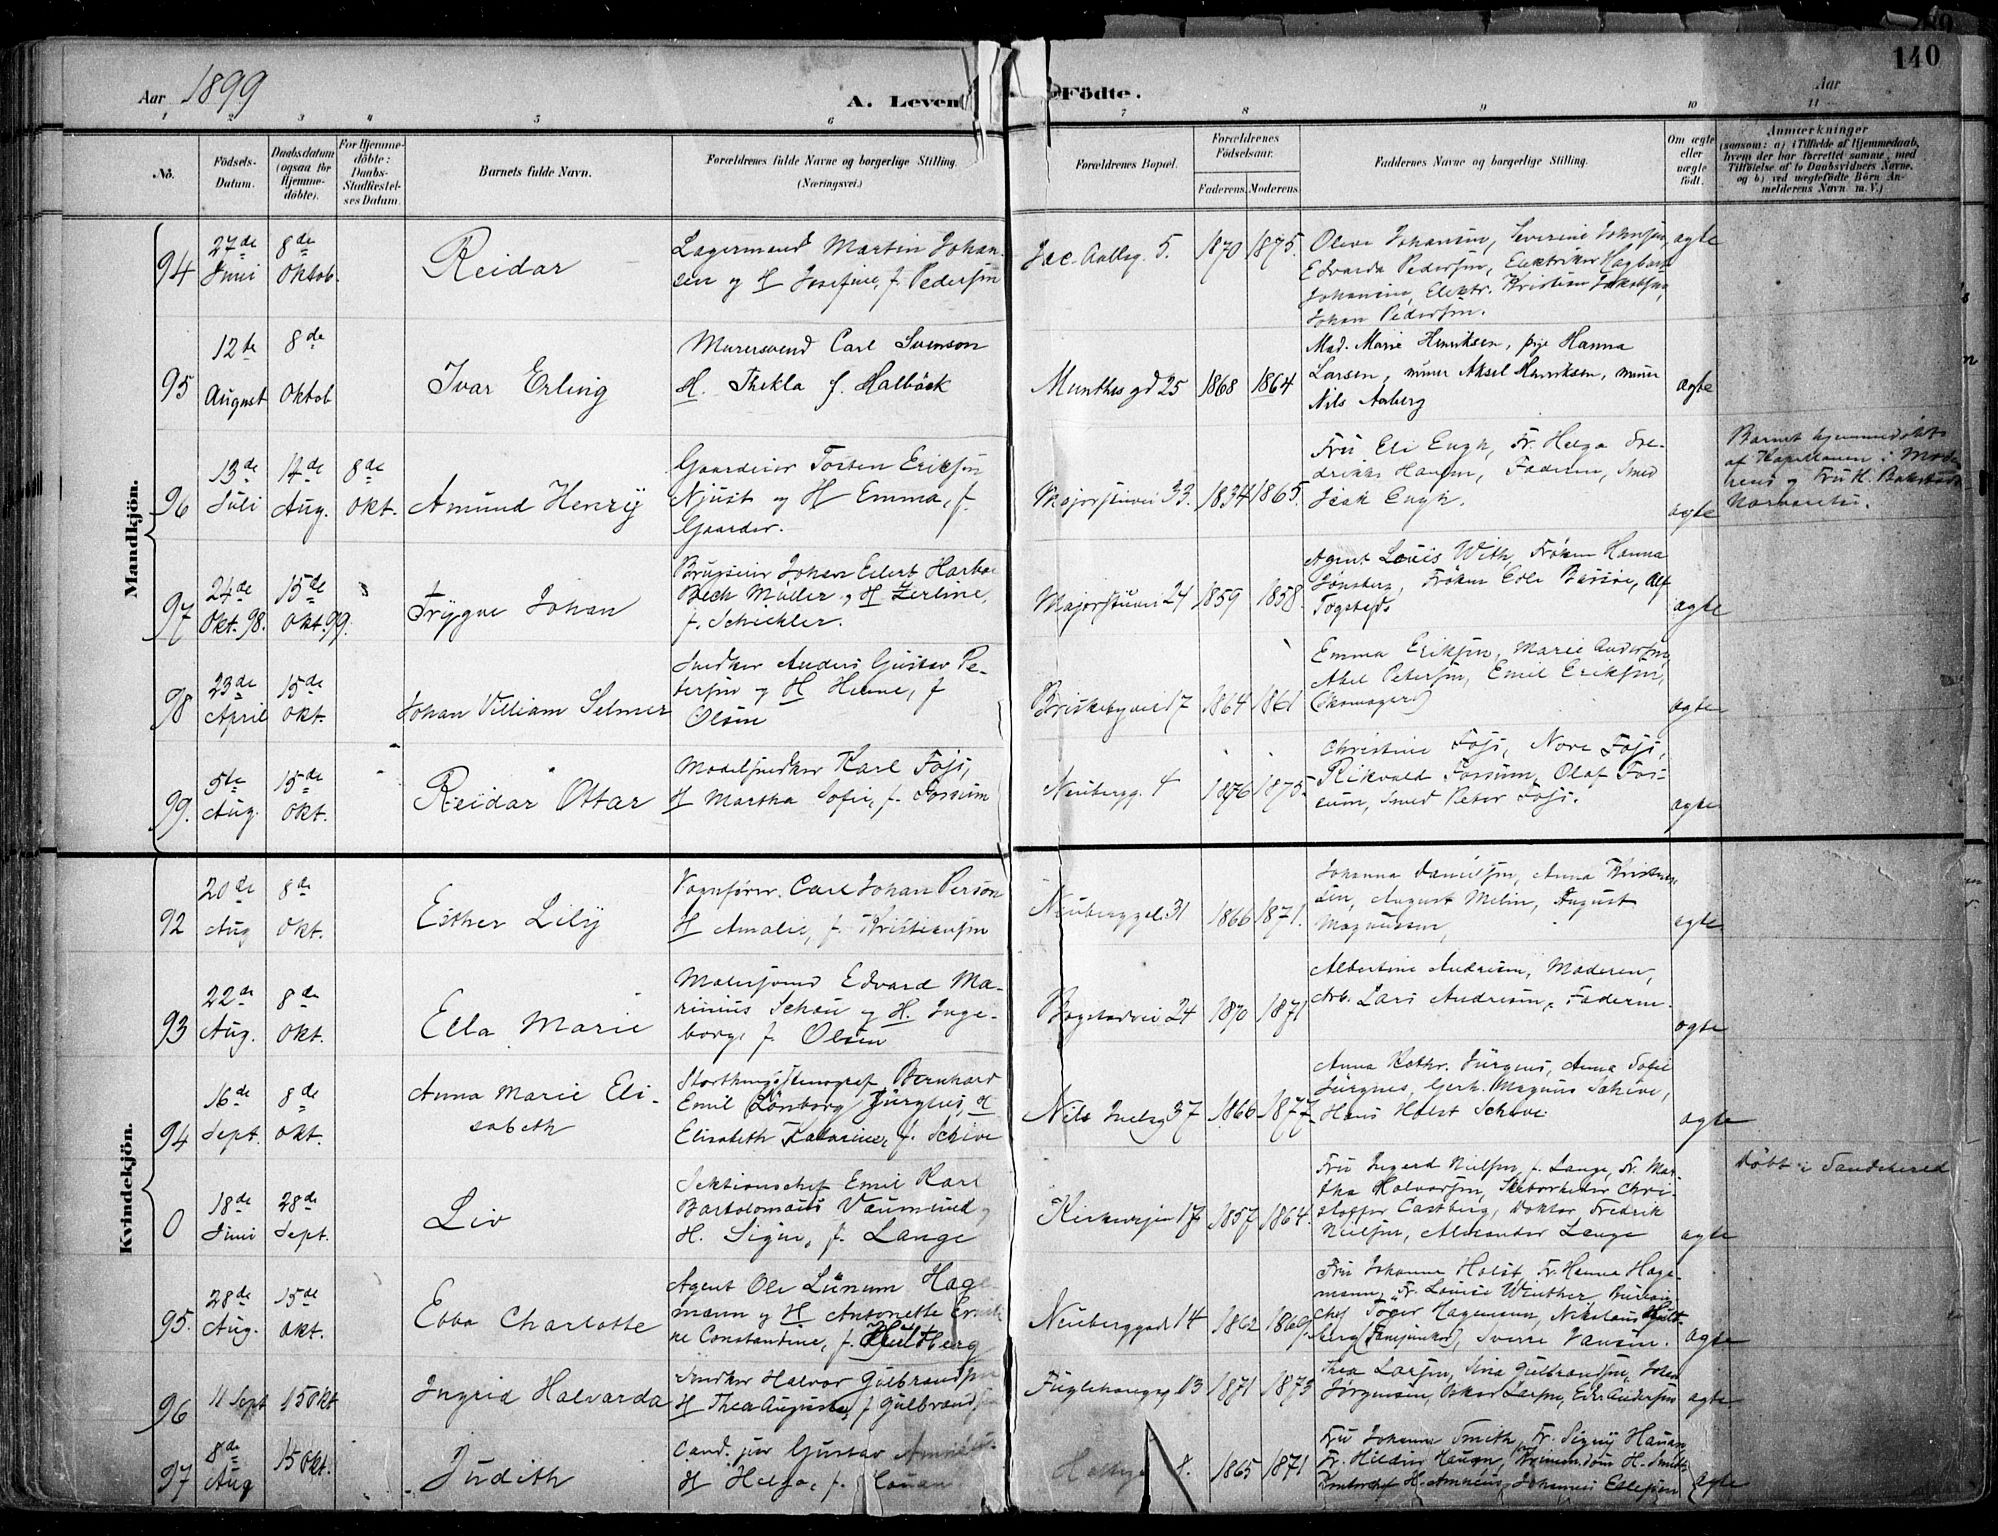 140
Aar 1899
A. Leven
Födte.
Aar
1 2 3 4 5 6 7 8 9 10 11
No.
Födsels-Datum.
Daabsdatum (ogsaa for Hjemmedöbte).
For Hjemmedöbte: Daabs-Stadfæstelses Datum.
Barnets fulde Navn.
Forældrenes fulde Navne og borgerlige Stilling. (Næringsvei.)
Forældrenes Bopæl.
Forældrenes Födselsaar.
Faderens. Moderens.
Faddernes Navne og borgerlige Stilling.
Om ægte eller uægte födt.
Anmærkninger
(saasom: a) i Tilfælde af Hjemmedaab, hvem der har forrettet samme, med Tilföielse af to Daabsvidners Navne, og b) ved uægtefödte Börn Anmelderens Navn m. V.)
Mandkjön.
94 27de Juni 8de Oktob. Reidar
Lagermand Martin Johan-
sen og H Josefine, f. Pedersen
Jac. Aallsg. 5. 1870 1875.
Oleve Johansen, Severine Johnsen,
Edvarda Pedersen, Elektriker Hagbart
Johansen, Elektr. Kristian Jakobsen,
Johan Pedersen.
ægte
95 12te August 8de Oktob Ivar Erling
Murersvend Carl Svenson
H. Thekla f. Halbäck
Munthes gd 25 1868 1864
Mad. Marie Henriksen, pige Hanna
Larsen, murer Aksel Henriksen, murer
Nils Aaberg
ægte
96 13de Juli 14de Aug. 8de Okt. Amund Henry
Gaardeier Torsten Eriksen
Njust og H Emma, f.
Gaarder.
Majorstuvei 33. 1834 1865.
Fru Eli Engh, Fr. Helga Fre-
drikke Hansen, Faderen, Smed
Isak Engh.
ægte
Barnet hjemmedøbt
af Kapellanen i
97 24de Okt. 98. 15de Okt. 99. Trygve Johan
Brugseier Johan Eilert Harboe
Bech Møller, og H Zerline,
f. Schickler.
Majorstuvei 24 1859 1858.
Agent Louis With, Frøken Hanna
Jønsberg, Frøken
ægte
98 23de April 15de Okt. Johan Villiam Selmer
Snedker Anders Gustav Pe-
tersen og H Helene, f
Olsen
Briskebyveid 7 1864 1861
Emma Eriksen, Marie Andersen,
Axel Petersen, Emil Eriksen,
(skomager)
ægte
99. 5te Aug. 15de Okt. Reidar Ottar
Modelsnedker Karl Fojs,
H Martha Sofie, f. Fossum
Neubergg. 4 1876 1875.
Christine Fojs, Nora Fojs,
Rikvald Fossum, Olaf Fos-
sum, Smed Peter Fojs.
ægte
Kvindekjön.
92 20de Aug 8de Okt. Esther Lily
Vognfører. Carl Johan Person
H Amalie, f. Kristiansen
Neuberggd. 31 1866 1871.
Johanna Danielsen, Anna Kristian-
sen, August Melin, August
Magnussen,
ægte
93 22de Aug. 8de Okt. Ella Marie
Malersvend Edvard Ma-
rinius Schou og H. Inge-
borg, f. Olsen
Bogstadvei 24 1870 1871
Albertine Andresen, Moderen,
Arb. Lars Andresen, Faderen.
ægte
94 16de Sept. 8de Okt. Anna Marie Eli-
sabeth
Storthingsstenograf Bernhard
Emil (Lønborg) Jürgens, H
Elisabeth Katarine, f. Schive
Nils Juelsg 37 1866 1877.
Anna Kathr. Jürgens, Anna Sofie
Jürgens, Gerh. Magnus Schive,
Hans Holst Schive.
ægte
0 18de Juni 28de Sept. Liv
Sektionschef Emil Karl
Bartolomäus Vaumund og
H. Signe, f. Lange
Kirkeveien 17 1857 1864.
Fru Ingerd Nielsen, f. Lange, Fr. Mar-
tha Halvorsen, Chri-
stoffer Castberg, Doktor Fredrik
Nielsen, Alexander Lange
ægte
Døbt i Sandeherred
95. 28de Aug. 15de Okt. Ebba Charlotte
Agent Ole Lünum Hage-
mann og H Antonette
ne Constandine, f. Hultberg
Neuberggad. 14 1862
Fru Johanne Holst, Fr. Hanna Hage-
mann, Fr. Louise Winther,
Hagemann, Nikolaus Hult-
berg Sverre Vansen.
ægte
96 11 Sept 15 Okt Ingrid Halvarda
Snedker Halvor Gulbrandsen
H Thea Auguste, f Gulbrandsen
Fuglehaugsg. 13 1871 1873
Thea Larsen, Sina Gulbrandsen,
Jørgensen, Oskar Larsen, Andersen
ægte
97 8de Aug 15 Okt. Judith
Cand. jur Gustav Amnéus
H Helga, f.
8. 1865 1871
Fru Johanne Smith, Fr. Signy
Fr. Hildur Haugen,
H. Amnéus, Johannes Ellefsen
ægte